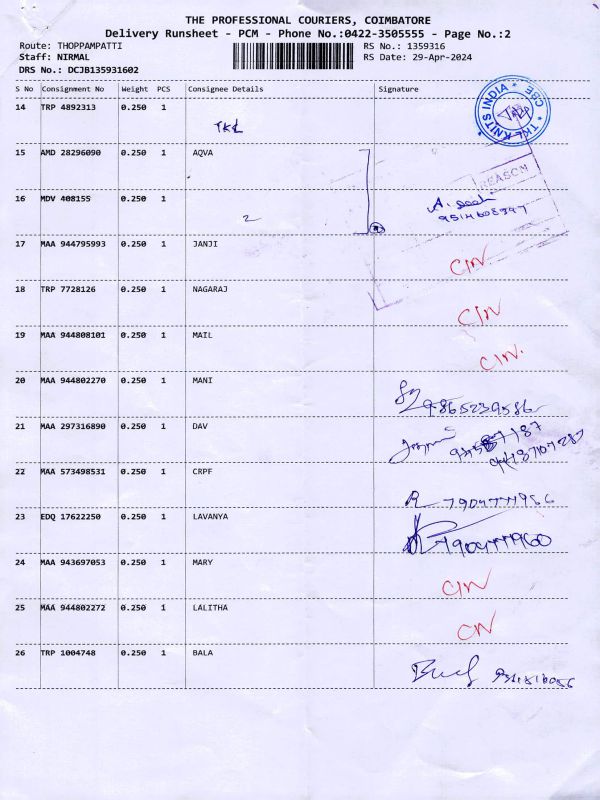 THE PROFESSIONAL COURIERS, COIMBATORE
Delivery Runsheet - PCM - Phone No.:0422-3505555 - Page No.:2
Route: THOPPAMPATTI RS No.: 1359316
Staff: NIRMAL RS Date: 29-Apr-2024
DRS No.: DCJB135931602
S No Consignment No Weight PCS Consignee Details Signature
14 TRP 4892313 0.250 1
TKL
TKL KNITS INDIA * CBE *
15 AMD 28296090 0.250 1 AQVA
REASON
16 MDV 408155 0.250 1
2
17 MAA 944795993 0.250 1 JANJI
CIN
18 TRP 7728126 0.250 1 NAGARAJ
CIN
19 MAA 944808101 0.250 1 MAIL
CIN.
20 MAA 944802270 0.250 1 MANI
9865239586
21 MAA 297316890 0.250 1 DAV
22 MAA 573498531 0.250 1 CRPF
23 EDQ 17622250 0.250 1 LAVANYA
24 MAA 943697053 0.250 1 MARY
CIN
25 MAA 944802272 0.250 1 LALITHA
CIN
26 TRP 1004748 0.250 1 BALA